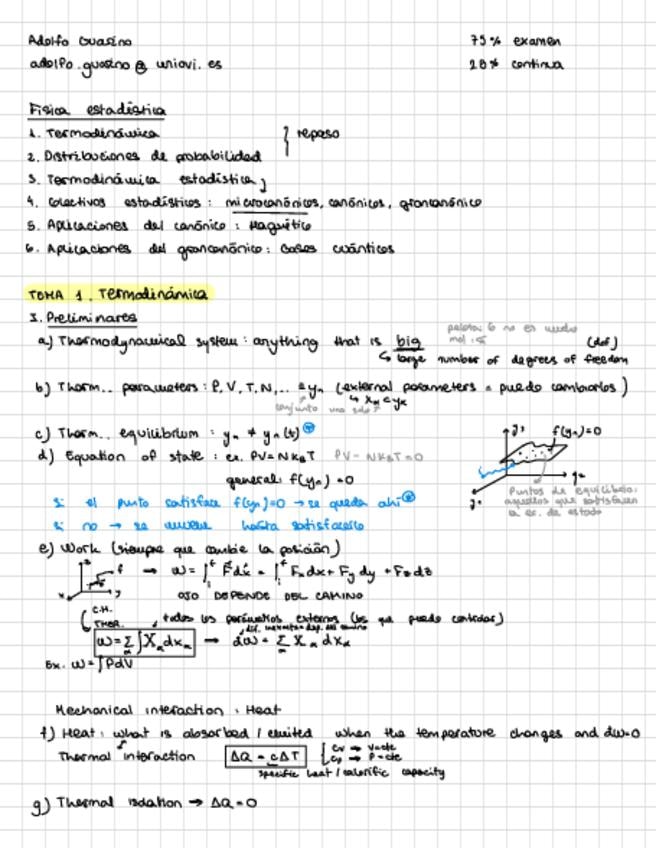 Adolfo Guasino 75% examen
adolfo.guasino@uniovi.es 20% continua
Física estadística
1. Termodinámica } repaso
2. Distribuciones de probabilidad
3. Termodinámica estadística
4. Colectivos estadísticos: microcanónicos, canónicos, grancanónico
5. Aplicaciones del canónico: Magnético
6. Aplicaciones del grancanónico: Gases cuánticos
TOMA 1. Termodinámica
1. Preliminares
a) Thermodynamical system: anything that is big (def)
↳ large number of degrees of freedom
b) Therm.. parameters: P, V, T, N,... ≡ yₙ (external parameters = puedo cambiarlos)
conjunto uno solo
c) Therm.. equilibrium: yₙ ≠ yₙ(t)
d) Equation of state: ex. PV=NkBT PV-NkBT=0
general: f(yₙ)=0
f(yₙ)=0
si el punto satisface f(yₙ)=0 → se queda ahí
si no → se mueve hasta satisfacerlo
Puntos de equilibrio:
aquellos que satisfacen
la ec. de estado
e) Work (siempre que cambie la posición)
→ W=∫F⃗dx⃗ = ∫Fₓdx+Fydy+Fzdz
OJO DEPENDE DEL CAMINO
C.M.
THER. todos los parámetros externos (los que puedo controlar)
W=Σ∫Xₐdxₐ → dW=ΣXₐdxₐ
Ex. W=∫PdV
Mechanical interaction: Heat
f) Heat: what is absorbed / emited when the temperature changes and dw=0
Thermal interaction ΔQ=cΔT { cv → V=cte
cp → P=cte
specific heat / calorific capacity
g) Thermal isolation → ΔQ=0